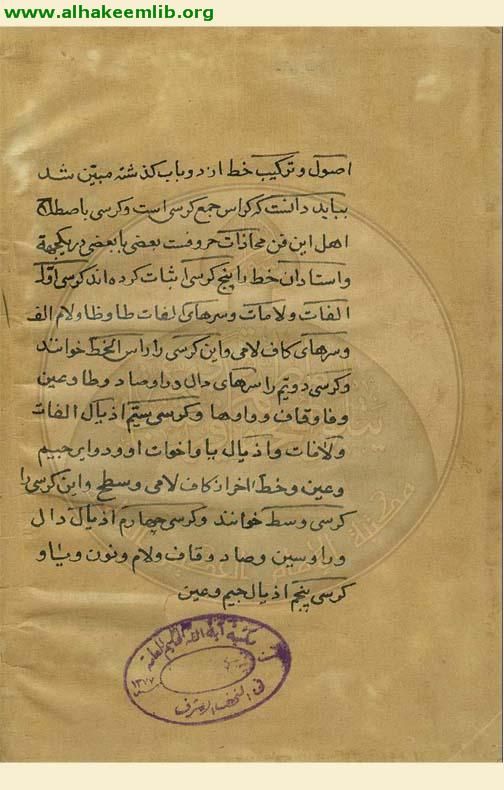 www.alhakeemlib.org
اصول و ترکیب خط از دو باب گذشته مبین شد
بباید دانست که کراسی جمع کرسی است و کرسی باصطلاح
اهل این فن محاذات حروفست بعضی با بعضی در یکجهة
و استادان خط را پنج کرسی اثبات کرده‌اند کرسی اول
الفات و لامات و سرهای الفات طا و ظا و لام الف
و سرهای کاف لامی و این کرسی را راس الخط خوانند
و کرسی دویم را سرهای دال و را و صاد و طا و عین
و فا و قاف و واوها و کرسی سیّم اذیال الفات
و لامات و اذیال با و اخوات او و دوایر جیم
و عین و خط آخر از کاف لامی و سطح و این کرسی را
کرسی وسط خوانند و کرسی چهارم اذیال دال
و را و سین و صاد و قاف و لام و نون و یا و
کرسی پنجم اذیال جیم و عین
مکتبة آیة الله الحکیم العامة
١٣٧٧
فی النجف الاشرف